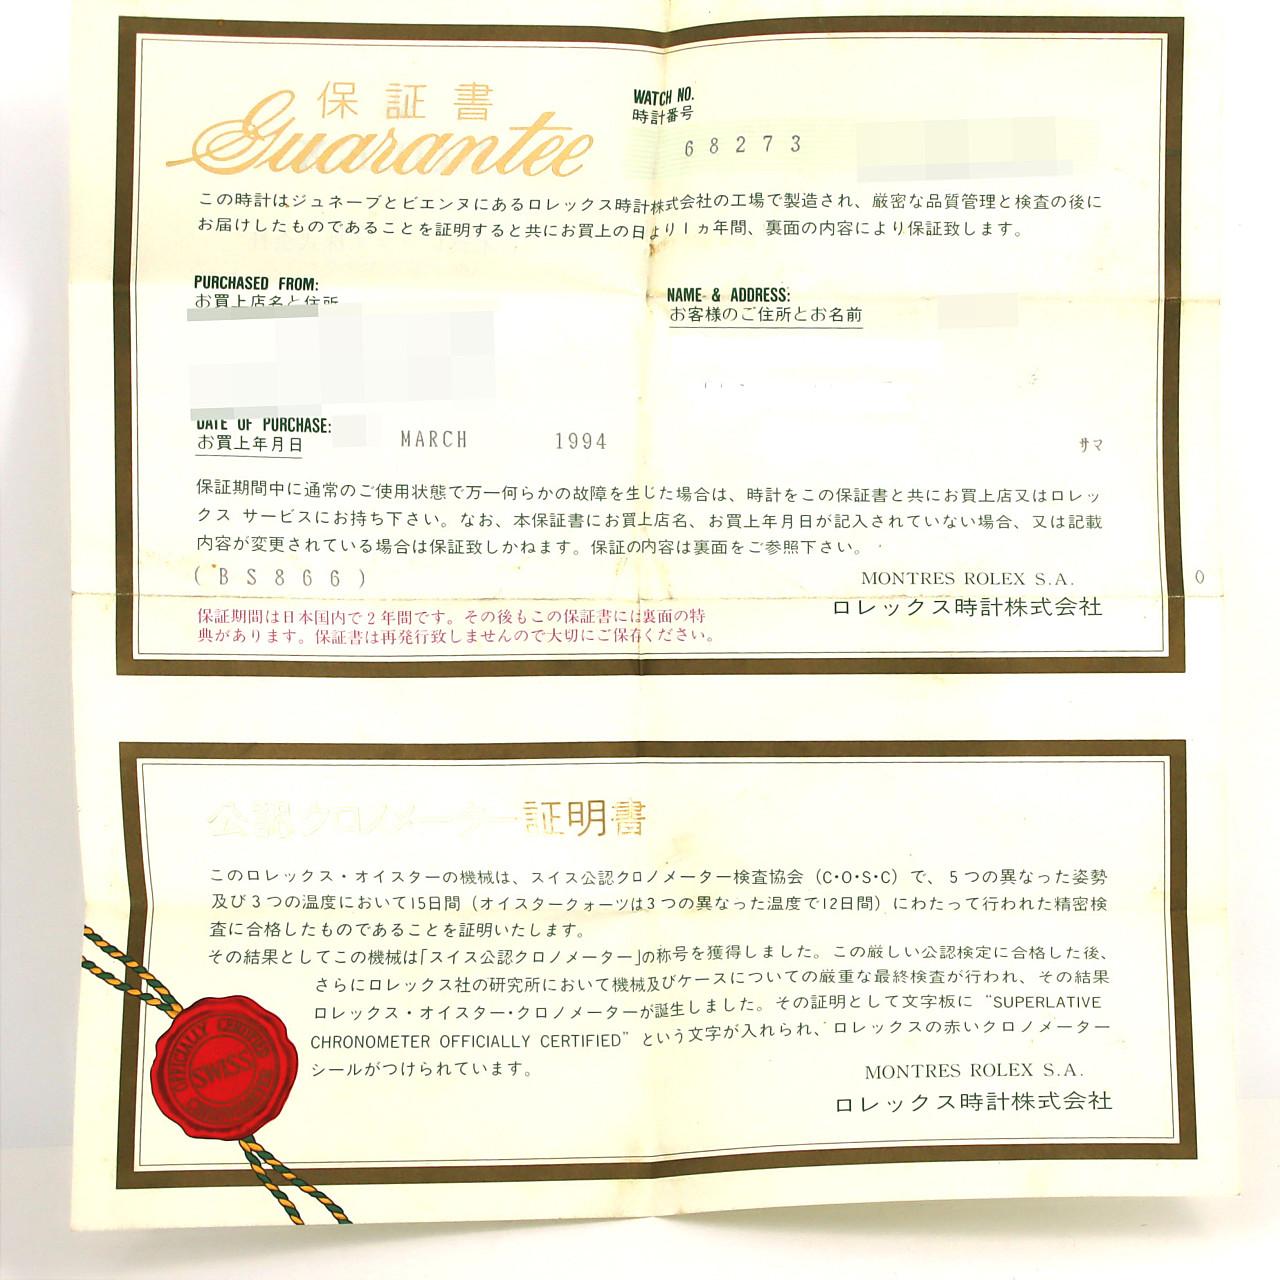 保証書
Guarantee
WATCH NO.
時計番号
68273
この時計はジュネーブとビエンヌにあるロレックス時計株式会社の工場で製造され、厳密な品質管理と検査の後に
お届けしたものであることを証明すると共にお買上の日より1ヵ年間、裏面の内容により保証致します。
PURCHASED FROM:
お買上店名と住所
NAME & ADDRESS:
お客様のご住所とお名前
DATE OF PURCHASE:
お買上年月日
MARCH 1994
サマ
保証期間中に通常のご使用状態で万一何らかの故障を生じた場合は、時計をこの保証書と共にお買上店又はロレッ
クス サービスにお持ち下さい。なお、本保証書にお買上店名、お買上年月日が記入されていない場合、又は記載
内容が変更されている場合は保証致しかねます。保証の内容は裏面をご参照下さい。
(BS866)
MONTRES ROLEX S.A.
ロレックス時計株式会社
0
保証期間は日本国内で2年間です。その後もこの保証書には裏面の特
典があります。保証書は再発行致しませんので大切にご保存ください。
公認クロノメーター証明書
このロレックス・オイスターの機械は、スイス公認クロノメーター検査協会（C・O・S・C）で、5つの異なった姿勢
及び3つの温度において15日間（オイスタークォーツは3つの異なった温度で12日間）にわたって行われた精密検
査に合格したものであることを証明いたします。
その結果としてこの機械は「スイス公認クロノメーター」の称号を獲得しました。この厳しい公認検定に合格した後、
さらにロレックス社の研究所において機械及びケースについての厳重な最終検査が行われ、その結果
ロレックス・オイスター・クロノメーターが誕生しました。その証明として文字板に “SUPERLATIVE
CHRONOMETER OFFICIALLY CERTIFIED” という文字が入れられ、ロレックスの赤いクロノメーター
シールがつけられています。
MONTRES ROLEX S.A.
ロレックス時計株式会社
OFFICIALLY CERTIFIED
SWISS
CHRONOMETER